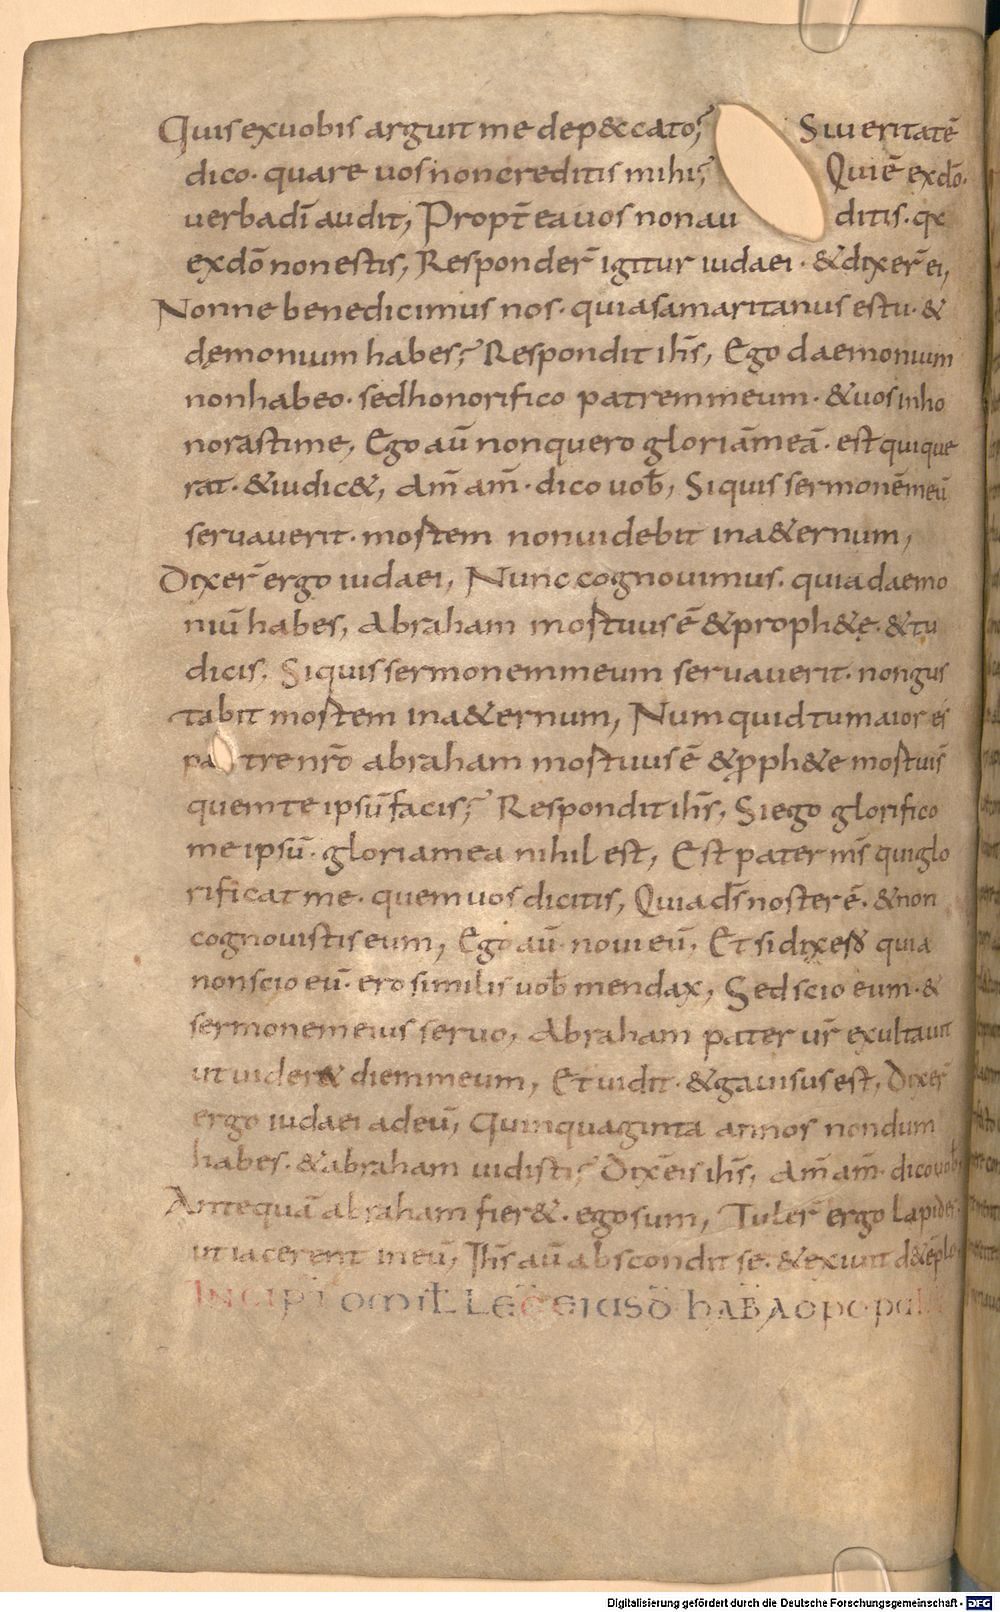 Quis ex uobis arguit me de p&ccato; Si ueritatē
dico· quare uos non creditis mihi; Qui ē ex dō·
uerba dī audit, Propt̄ ea uos non au ditis· q̅
ex dō non estis, Responder̄ igitur iudaei· & dixer̄ ei,
Nonne bene dicimus nos· quia samaritanus es tu· &
dęmonium habes; Respondit ih̄s, Ego daemonium
non habeo· sed honorifico patrem meum· & uos inho
norastis me, Ego aū non quero gloriā meā· est qui que
rat· & iudic&, Am̄ am̄· dico uob̄, Si quis sermonē meū
seruauerit· mortem non uidebit in a&ernum,
Dixer̄ ergo iudaei, Nunc cognouimus· quia daemo
niū habes, Abraham mortuus ē & proph&ę· & tu
dicis· Si quis sermonem meum seruauerit· non gus
tabit mortem in a&ernum, Num quid tu maior es
pa tre nr̄o abraham mortuus ē & p̄ph&e mortui s̄
quem te ipsū facis; Respondit ih̄s, Si ego glorifico
me ipsū· gloria mea nihil est, Est pater m̄s qui glo
rificat me· quem uos dicitis, Quia d̄s noster ē· & non
cognouistis eum, Ego aū noui eū, Et si dixero quia
non scio eū· ero similis uob̄ mendax, Sed scio eum· &
sermonem eius seruo, Abraham pater ur̄ exultauit
ut uider& diem meum, Et uidit· & gauisus est, Dixer̄
ergo iudaei ad eū, Quinquaginta annos nondum
habes· & abraham uidisti; Dix̄ eis ih̄s, Am̄ am̄· dico uob̄
Antequā abraham fier&· ego sum, Tuler̄ ergo lapides·
ut iacerent in eū, Ih̄s aū abscondit se· & exiuit d& ēplo·
INCIPĪT OMIL LEC̄ EIUSD̄ HAB̄ A